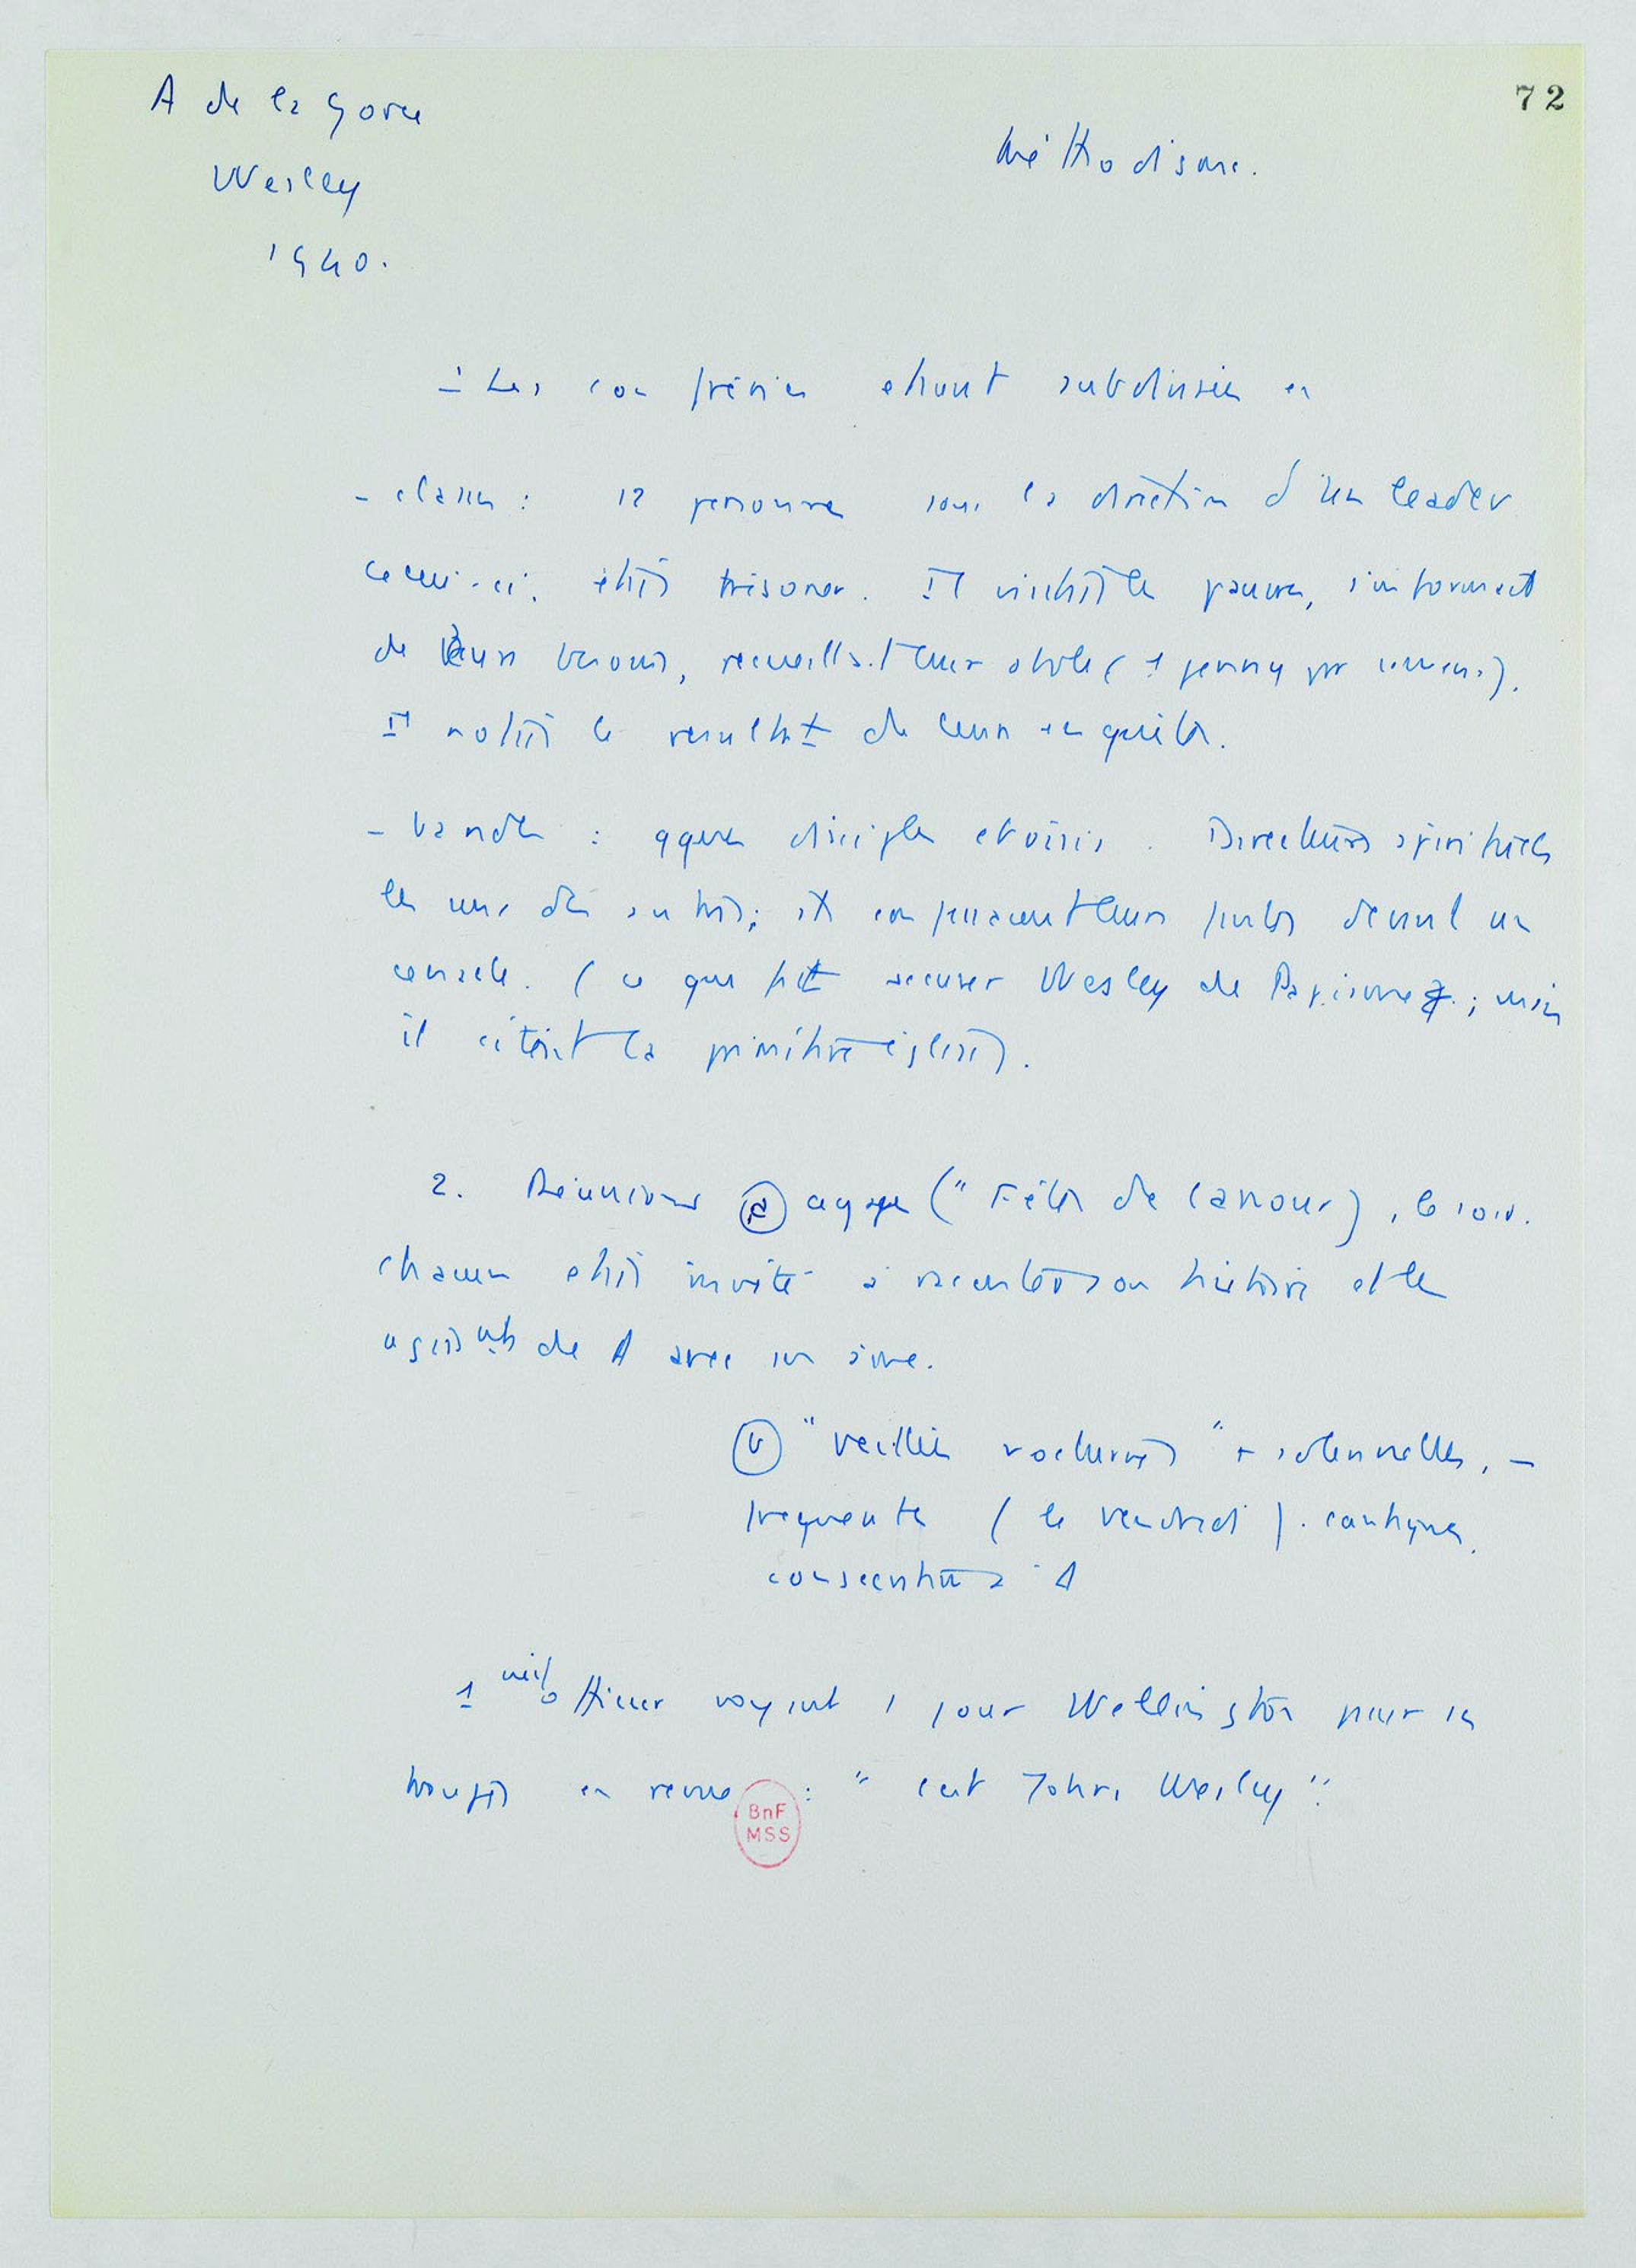 A de la Gorce
72
Wesley
Méthodisme.
1940.
1 Les confréries étaient subdivisées en
- classes : 12 personnes sous la direction d'un leader
celui-ci était trésorier. Il visitait les pauvres, s'informait
de leurs besoins, recueillait leur obole (1 penny par semaine).
Il notait le résultat de leurs enquêtes.
- bandes : qques disciples choisis. Directeurs spirituels
les uns des autres; ils confessaient leurs fautes devant un
cénacle. (ce qui fit accuser Wesley de Papisme; mais
il citait la primitive église).
2. Réunions (a) agapes ("Fêtes de l'amour), le soir.
chacun était invité à raconter son histoire et les
de A avec son âme.
(b) "veillées nocturnes" + solennelles, -
fréquentes (le vendredi). cantiques
consecutives à A
1 officier voyant 1 jour Wellington passer ses
troupes en revue : " c'est John Wesley".
BnF
MSS